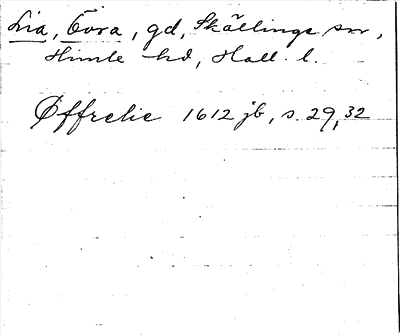 Lia, Övra, gd, Skällinge sn,
Himle hd, Hall. l.
Øffrelie 1612 jb, s. 29, 32